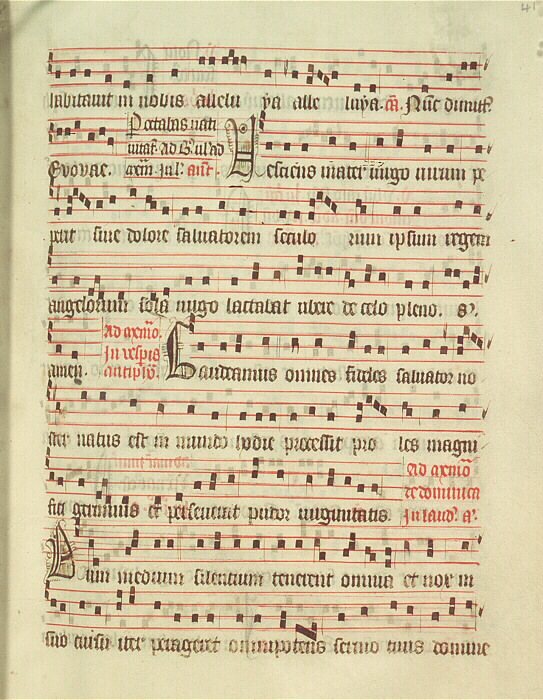 41
habitauit in nobis allelu ya alle luya. Nūc dimitt̄
Euouae. Octabas nati
uitat̄ ad
Nesciens mater uirgo uirum pe
perit sine dolore saluatorem seculo rum ipsum regem
angelorum sola uirgo lactabat ubere de celo pleno.
amen. Ad
In vesp̄is
Gaudeamus omnes fideles saluator no
ster natus est in mundo hodie processit pro les magni
fici germinis et perseuerat pudor uirginitatis.
de dominica
In laud̄. a.
Dum medium silentium tenerent omnia et nox in
suo cursu iter perageret omnipotens sermo tuus domine